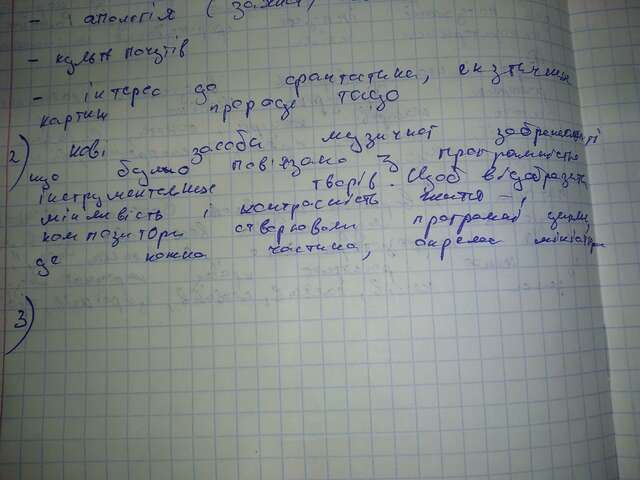 - і апологія (захист)
- культ почуттів
- інтерес до фантастики, екзотични
картин природи тощо
2) нові засоби музичної зображальності
що було пов'язано з програмністю
інструментальних творів. Щоб відобразити
мінливість і контрасність життя -,
композитори створювали програмні цикли,
де кожна частина, окрема мініатюра
3)